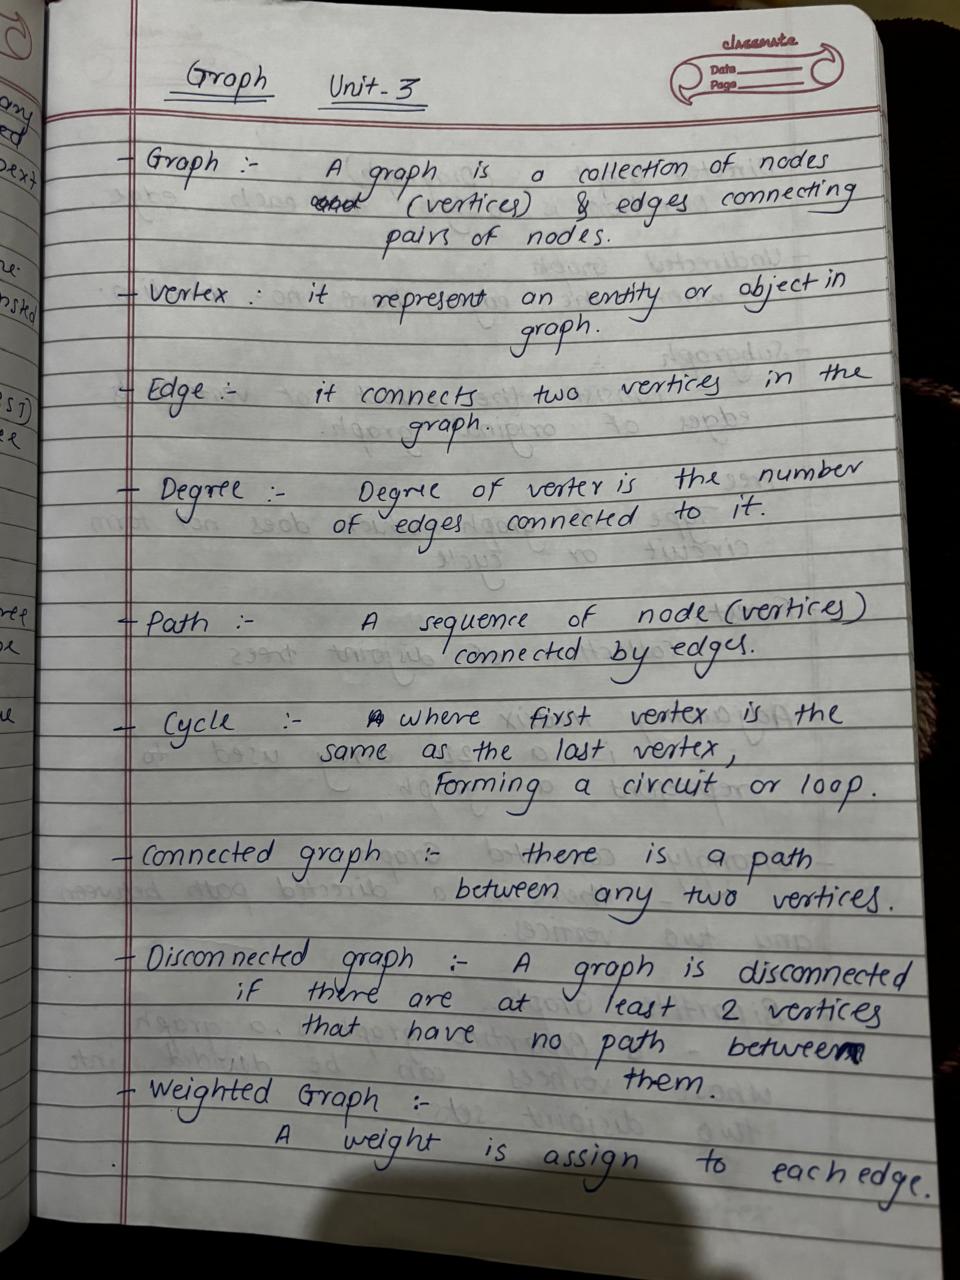 classmate
Date
Page
Graph Unit-3
- Graph :- A graph is a collection of nodes
(vertices) & edges connecting
pairs of nodes.
- vertex : it represent an entity or object in
graph.
- Edge :- it connects two vertices in the
graph.
- Degree :- Degree of vertex is the number
of edges connected to it.
- Path :- A sequence of node (vertices)
connected by edges.
- Cycle :- where first vertex is the
same as the last vertex,
Forming a circuit or loop.
- Connected graph :- there is a path
between any two vertices.
- Disconnected graph :- A graph is disconnected
if there are at least 2 vertices
that have no path between
them.
- Weighted Graph :-
A weight is assign to each edge.